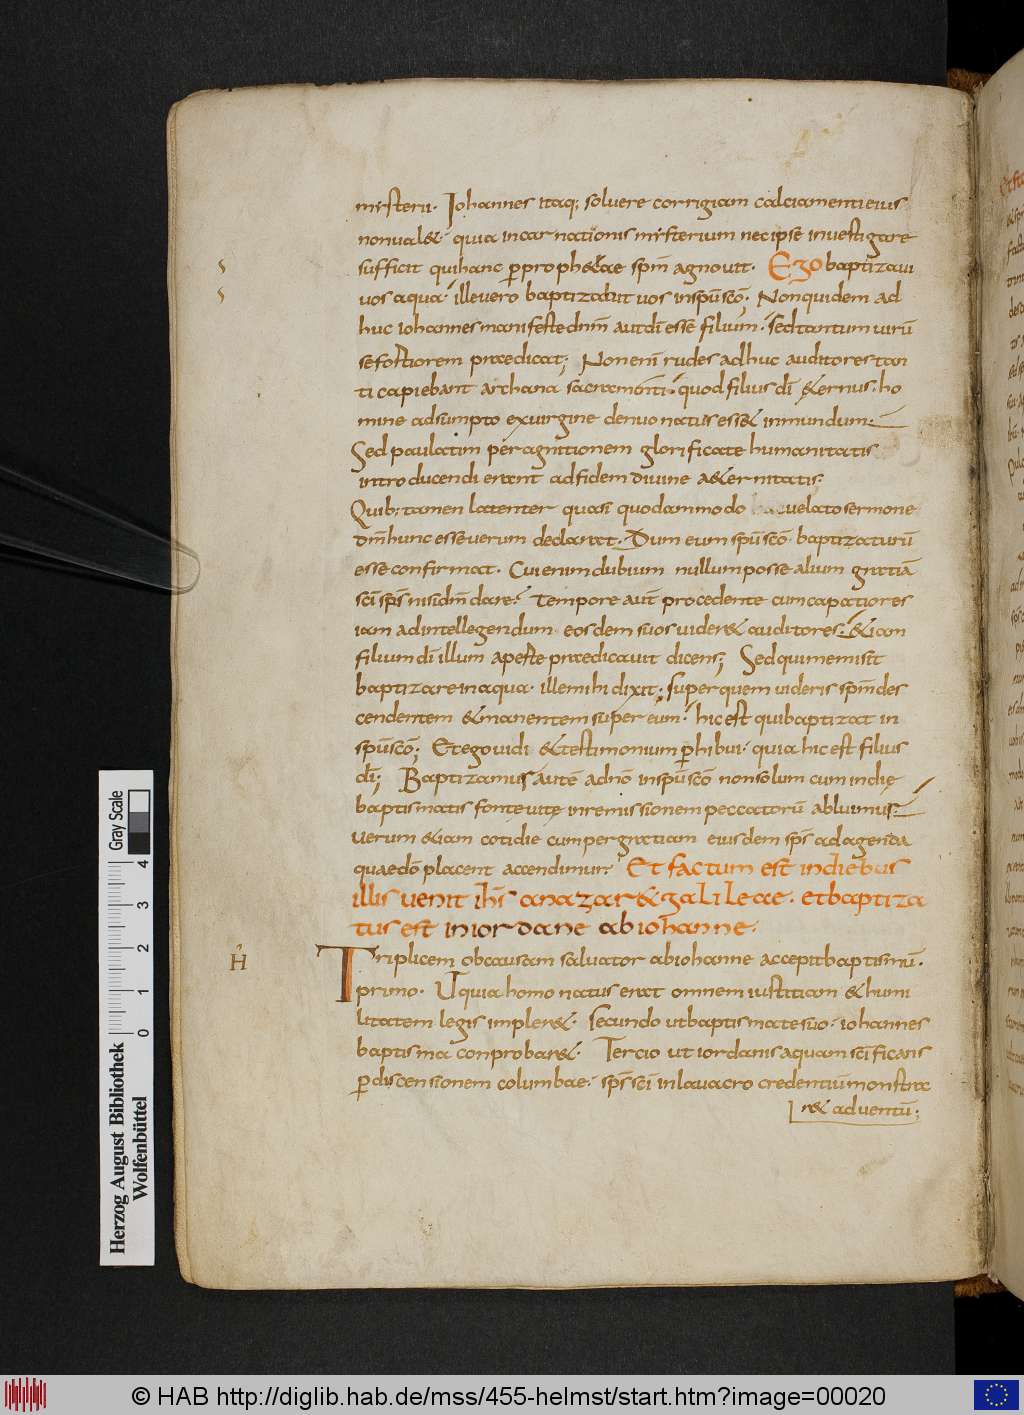 mysterii. Iohannes itaq; soluere corrigiam calciamenti eius
non ual&. quia incarnationis mysterium nec ipse inuestigare
sufficit qui hanc p̄ proph&iae sp̄m agnouit. Ego baptizaui
uos aqua. ille uero baptizabit uos in sp̄u sc̄o; Non quidem ad
huc iohannes manifeste dn̄m aut dī esse filium. sed tantum uirū
se fortiorem praedicat; Non enī rudes ad huc auditores tan
ti capiebant archana sacramenti. quod filius dī &ernus. ho
mine adsumpto ex uirgine denuo natus ess& in mundum.
Sed paulatim per agnitionem glorificate humanitatis
introducendi erant ad fidem diuine a&ernitatis.
Quib: tamen latenter quasi quodammodo uelato sermone
dn̄m hunc esse uerum declarat. Dum eum sp̄u sc̄o baptizaturū
esse confirmat. Cui enim dubium nullum posse alium gratiā
sc̄i sp̄s nisi dn̄m dare? Tempore aut̄ procedente cum capatiores
iam ad intellegendum eosdem suos uider& auditores. &iam
filium dī illum aperte praedicauit dicens; Sed qui me misit
baptizare in aqua. ille mihi dixit; super quem uideris sp̄m des
cendentem & manentem super eum. hic est qui baptizat in
sp̄u sc̄o; Et ego uidi & testimonium p̄hibui. quia hic est filius
dī; Baptizamus autē ad nō in sp̄u sc̄o non solum cum in die
baptismatis fonte uitę in remissionem peccatorū abluimus.
uerum &iam cotidie cum per gratiam eiusdem sp̄s ad agenda
quae dō placent accendimur. Et factum est in diebus
illis uenit ih̄s a nazar& galileae. et baptiza
tus est in iordane ab iohanne.
H Triplicem ob causam saluator ab iohanne accepit baptismū.
primo. Ut quia homo natus erat omnem iustitiam & humi
litatem legis impler&. Secundo ut baptismate suo. iohannes
baptisma conprobar&. Tercio ut iordanis aquam sc̄ificans
p̄ discensionem columbae. sp̄s sc̄i in lauacro credentiū monstra
r& aduentū;
Herzog August Bibliothek
Wolfenbüttel
0 1 2 3 4
Gray Scale
© HAB http://diglib.hab.de/mss/455-helmst/start.htm?image=00020